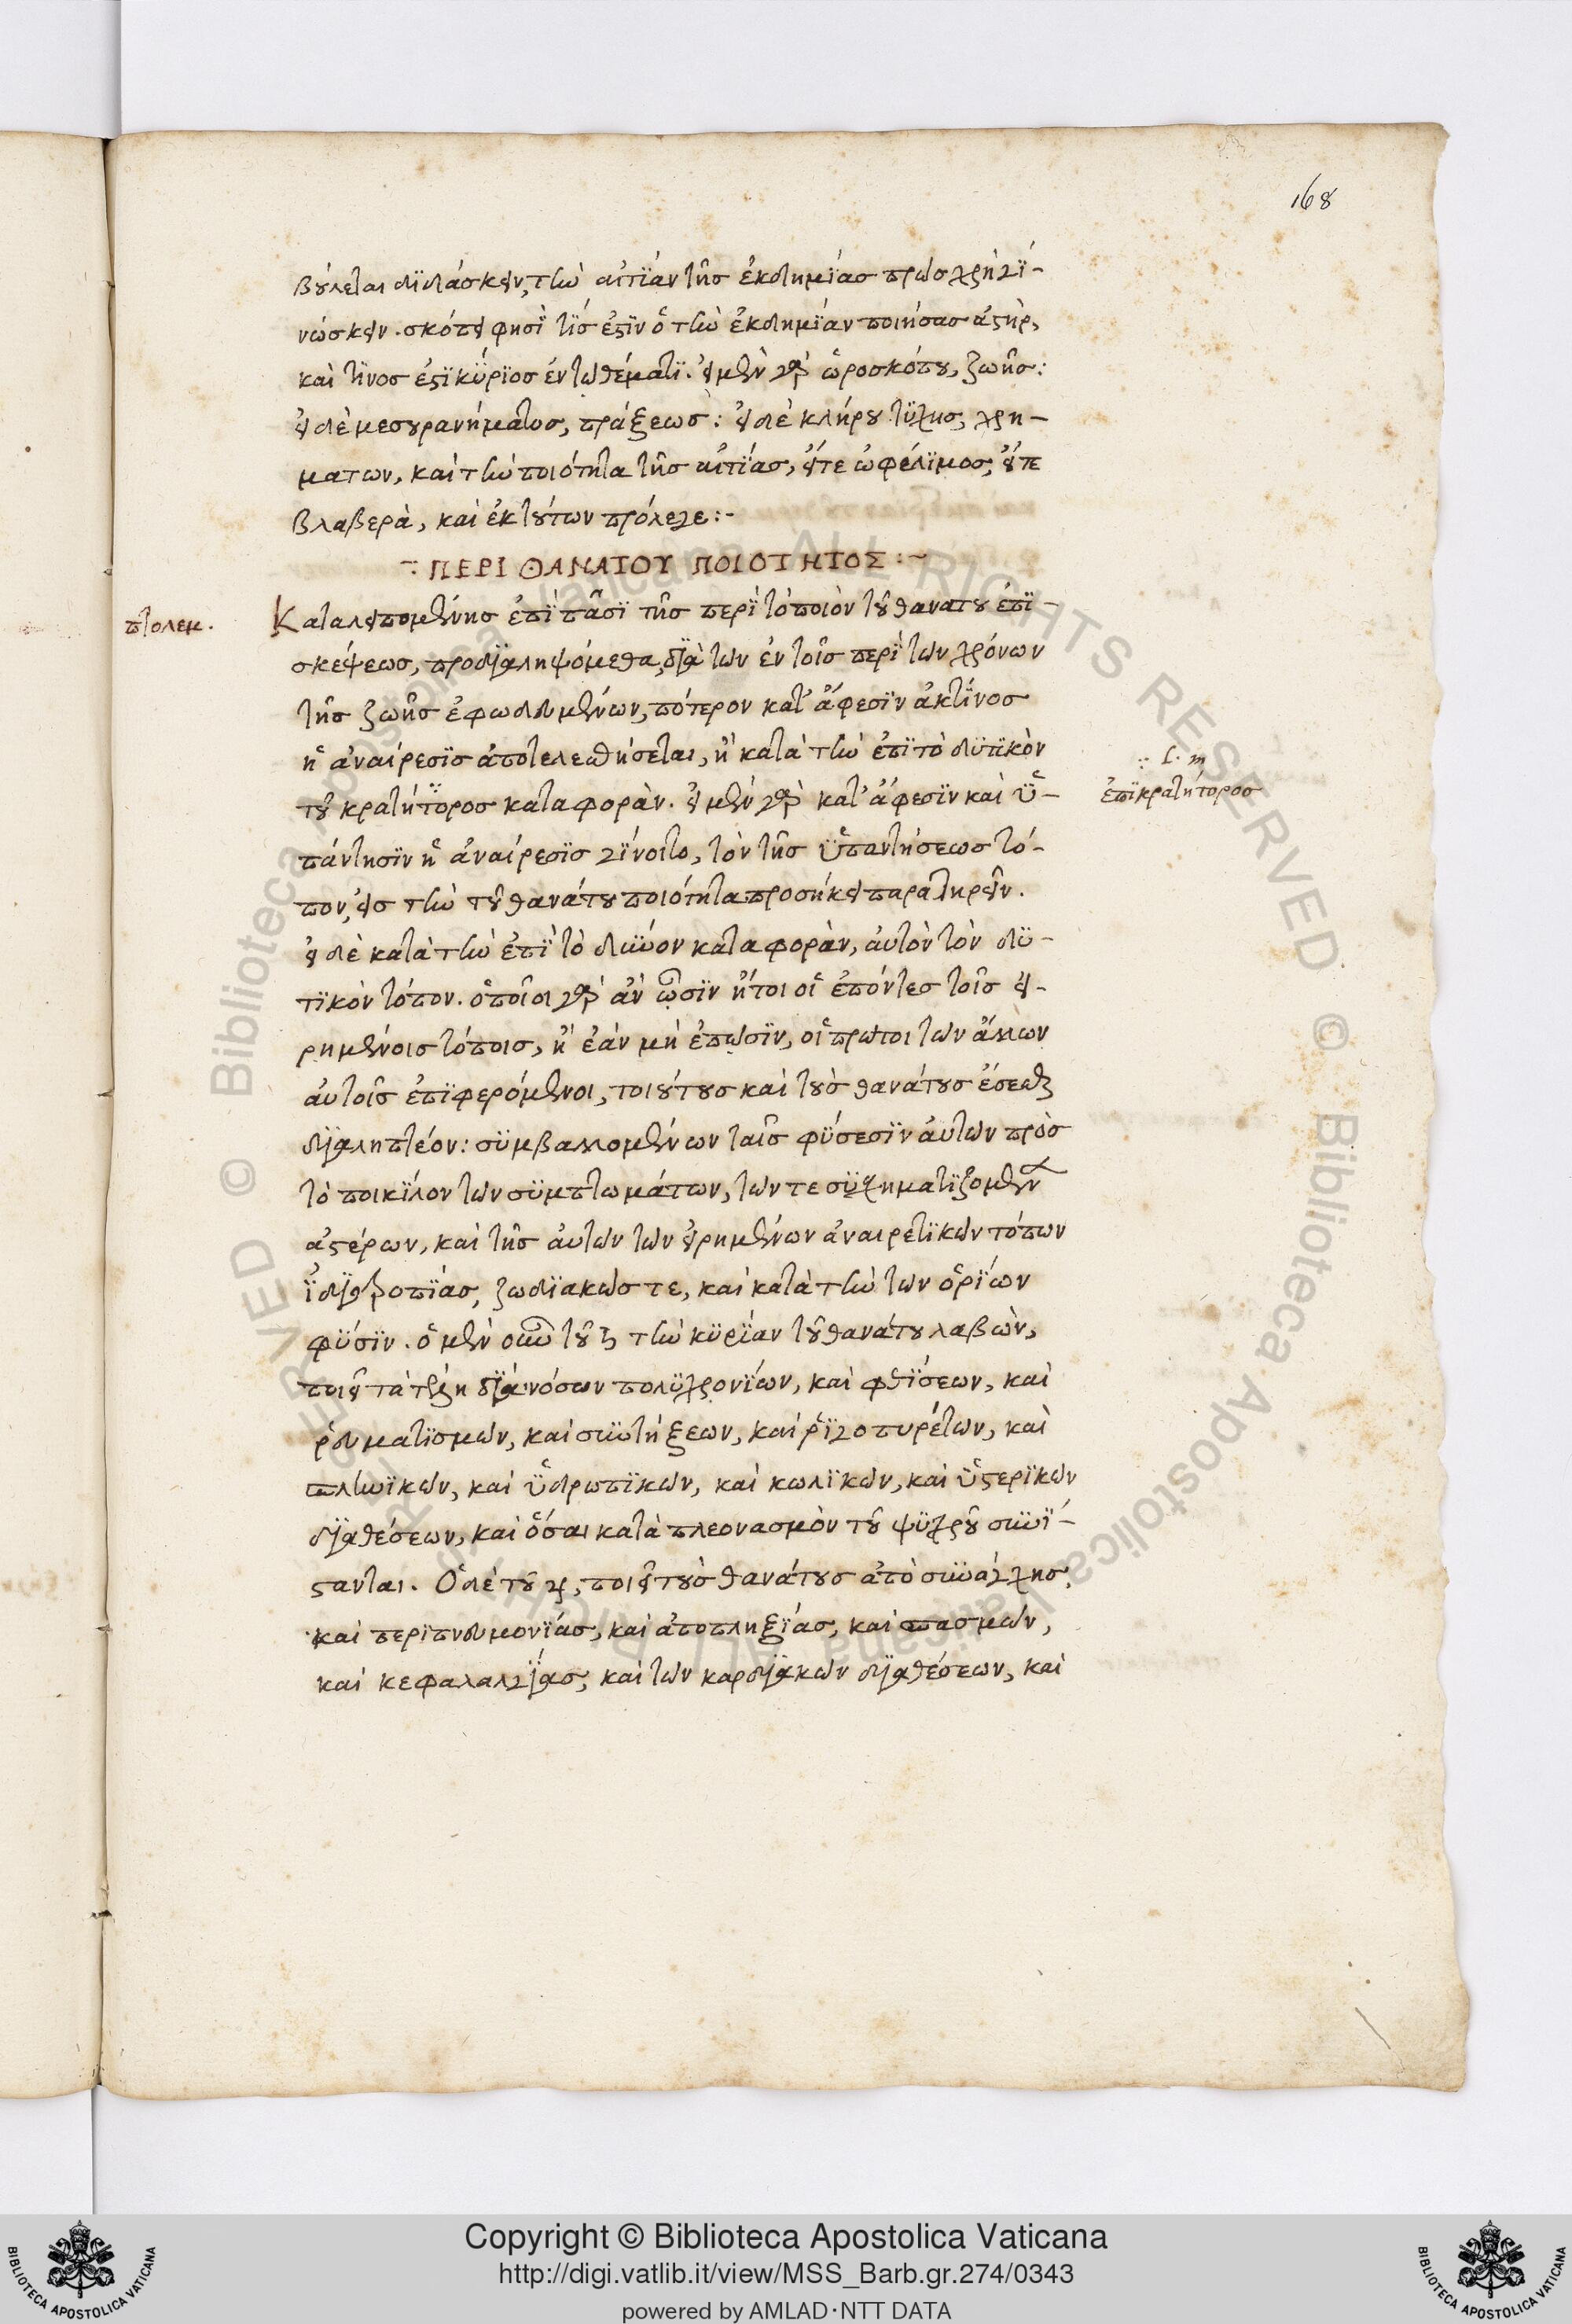 168
βούλεται διδάσκειν, τὴν αἰτίαν τῆς ἐκδημίας πρῶς χρὴ γϊ-
νώσκειν. σκόπει φησὶ τίς ἐστὶν ὁ τὴν ἐκδημίαν ποιήσας ἀστὴρ,
καὶ τίνος ἐστὶ κύριος ἐν τῷ θέματι. εἰ μὲν γὰρ ὡροσκόπου, ζωῆς:
εἰ δὲ μεσουρανήματος, πράξεως: εἰ δὲ κλήρου τύχης, χρη-
ματων, καὶ τὴν ποιότητα τῆς αἰτίας, εἴτε ὠφέλιμος, εἴτε
βλαβερὰ, καὶ ἐκ τούτων πρόλεγε:-
ΠΕΡΙ ΘΑΝΑΤΟΥ ΠΟΙΟΤΗΤΟΣ:~
πτολεμ.
Καταλειπομένης ἐπὶ πᾶσι τῆς περὶ τὸ ποιὸν τοῦ θανατου ἐπι-
σκέψεως, προδιαληψόμεθα, διὰ τῶν ἐν τοῖς περὶ τῶν χρόνων
τῆς ζωῆς ἐφωδευμένων, πότερον κατ' ἄφεσιν ἀκτῖνος
ἡ ἀναίρεσις ἀποτελεσθήσεται, ἢ κατὰ τὴν ἐπὶ τὸ δυτικὸν
τοῦ κρατήτορος καταφορὰν. εἰ μὲν γὰρ κατ' ἄφεσιν καὶ ὑ-
∴ L. m
ἐπικρατήτορος
πάντησιν ἡ ἀναίρεσις γίνοιτο, τὸν τῆς ὑπαντήσεως τό-
πον, εἰς τὴν τοῦ θανάτου ποιότητα προσήκει παρατηρεῖν.
εἰ δὲ κατὰ τὴν ἐπὶ τὸ δῦνον καταφορὰν, αὐτὸν τὸν δυ-
τικὸν τόπον. ὁποῖοι γὰρ ἂν ὦσιν ἤτοι οἱ ἐπόντες τοῖς εἰ-
ρημένοις τόποις, ἢ ἐὰν μὴ ἐπῶσιν, οἱ πρῶτοι τῶν ἄλλων
αὐτοῖς ἐπιφερόμενοι, τοιούτους καὶ τοὺς θανάτους ἔσεσθαι
διαληπτέον: συμβαλλομένων ταῖς φύσεσιν αὐτῶν πρὸς
τὸ ποικίλον τῶν συμπτωμάτων, τῶν τε συσχηματιζομένων
ἀστέρων, καὶ τῆς αὐτῶν τῶν εἰρημένων ἀναιρετικῶν τόπων
ἰδιοτροπίας, ζωδιακῶς τε, καὶ κατὰ τὴν τῶν ὁρίων
φύσιν. ὁ μὲν οὖν τοῦ ♄ τὴν κυρίαν τοῦ θανάτου λαβὼν,
ποιεῖ τὰ τέλη διὰ νόσων πολυχρονίων, καὶ φθίσεων, καὶ
ῥευματισμῶν, καὶ συντήξεων, καὶ ῥιγοπυρέτων, καὶ
σπληνικῶν, καὶ ὑδρωπικῶν, καὶ κωλικῶν, καὶ ὑστερικῶν
διαθέσεων, καὶ ὅσαι κατὰ πλεονασμὸν τοῦ ψυχροῦ συνί-
στανται. Ὁ δὲ τοῦ ♃, ποιεῖ τοὺς θανάτους ἀπὸ συνάγχης,
καὶ περιπνευμονίας, καὶ ἀποπληξίας, καὶ σπασμῶν,
καὶ κεφαλαλγίας, καὶ τῶν καρδιακῶν διαθέσεων, καὶ
Copyright © Biblioteca Apostolica Vaticana
http://digi.vatlib.it/view/MSS_Barb.gr.274/0343
powered by AMLAD·NTT DATA